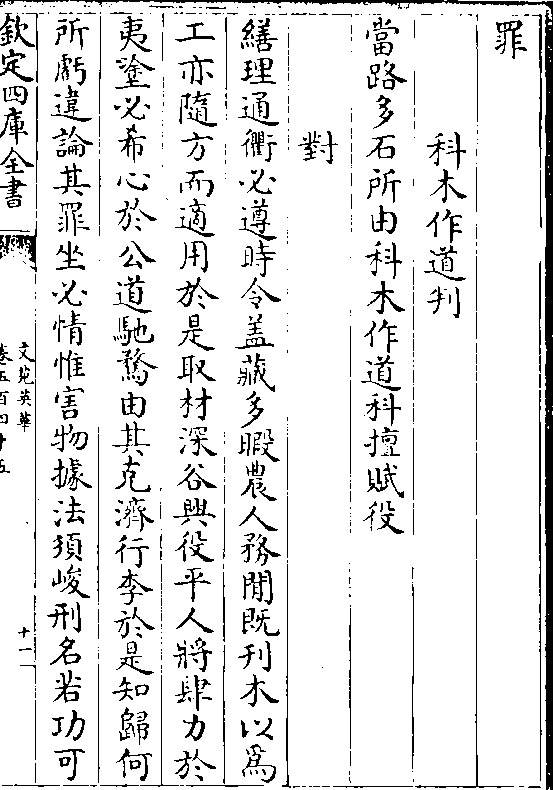 罪
科木作道判
當路多石所由科木作道科擅賦役
對
繕理通衢必遵時令盖藏多暇農人務閒既刋木以爲
工亦隨方而適用於是取材深谷興役平人將肆力於
夷塗必希心於公道馳騖由其克濟行李於是知歸何
所虧違論其罪坐必情惟害物據法須峻刑名若功可
欽定四庫全書
文苑英華
卷五百四十五
十一